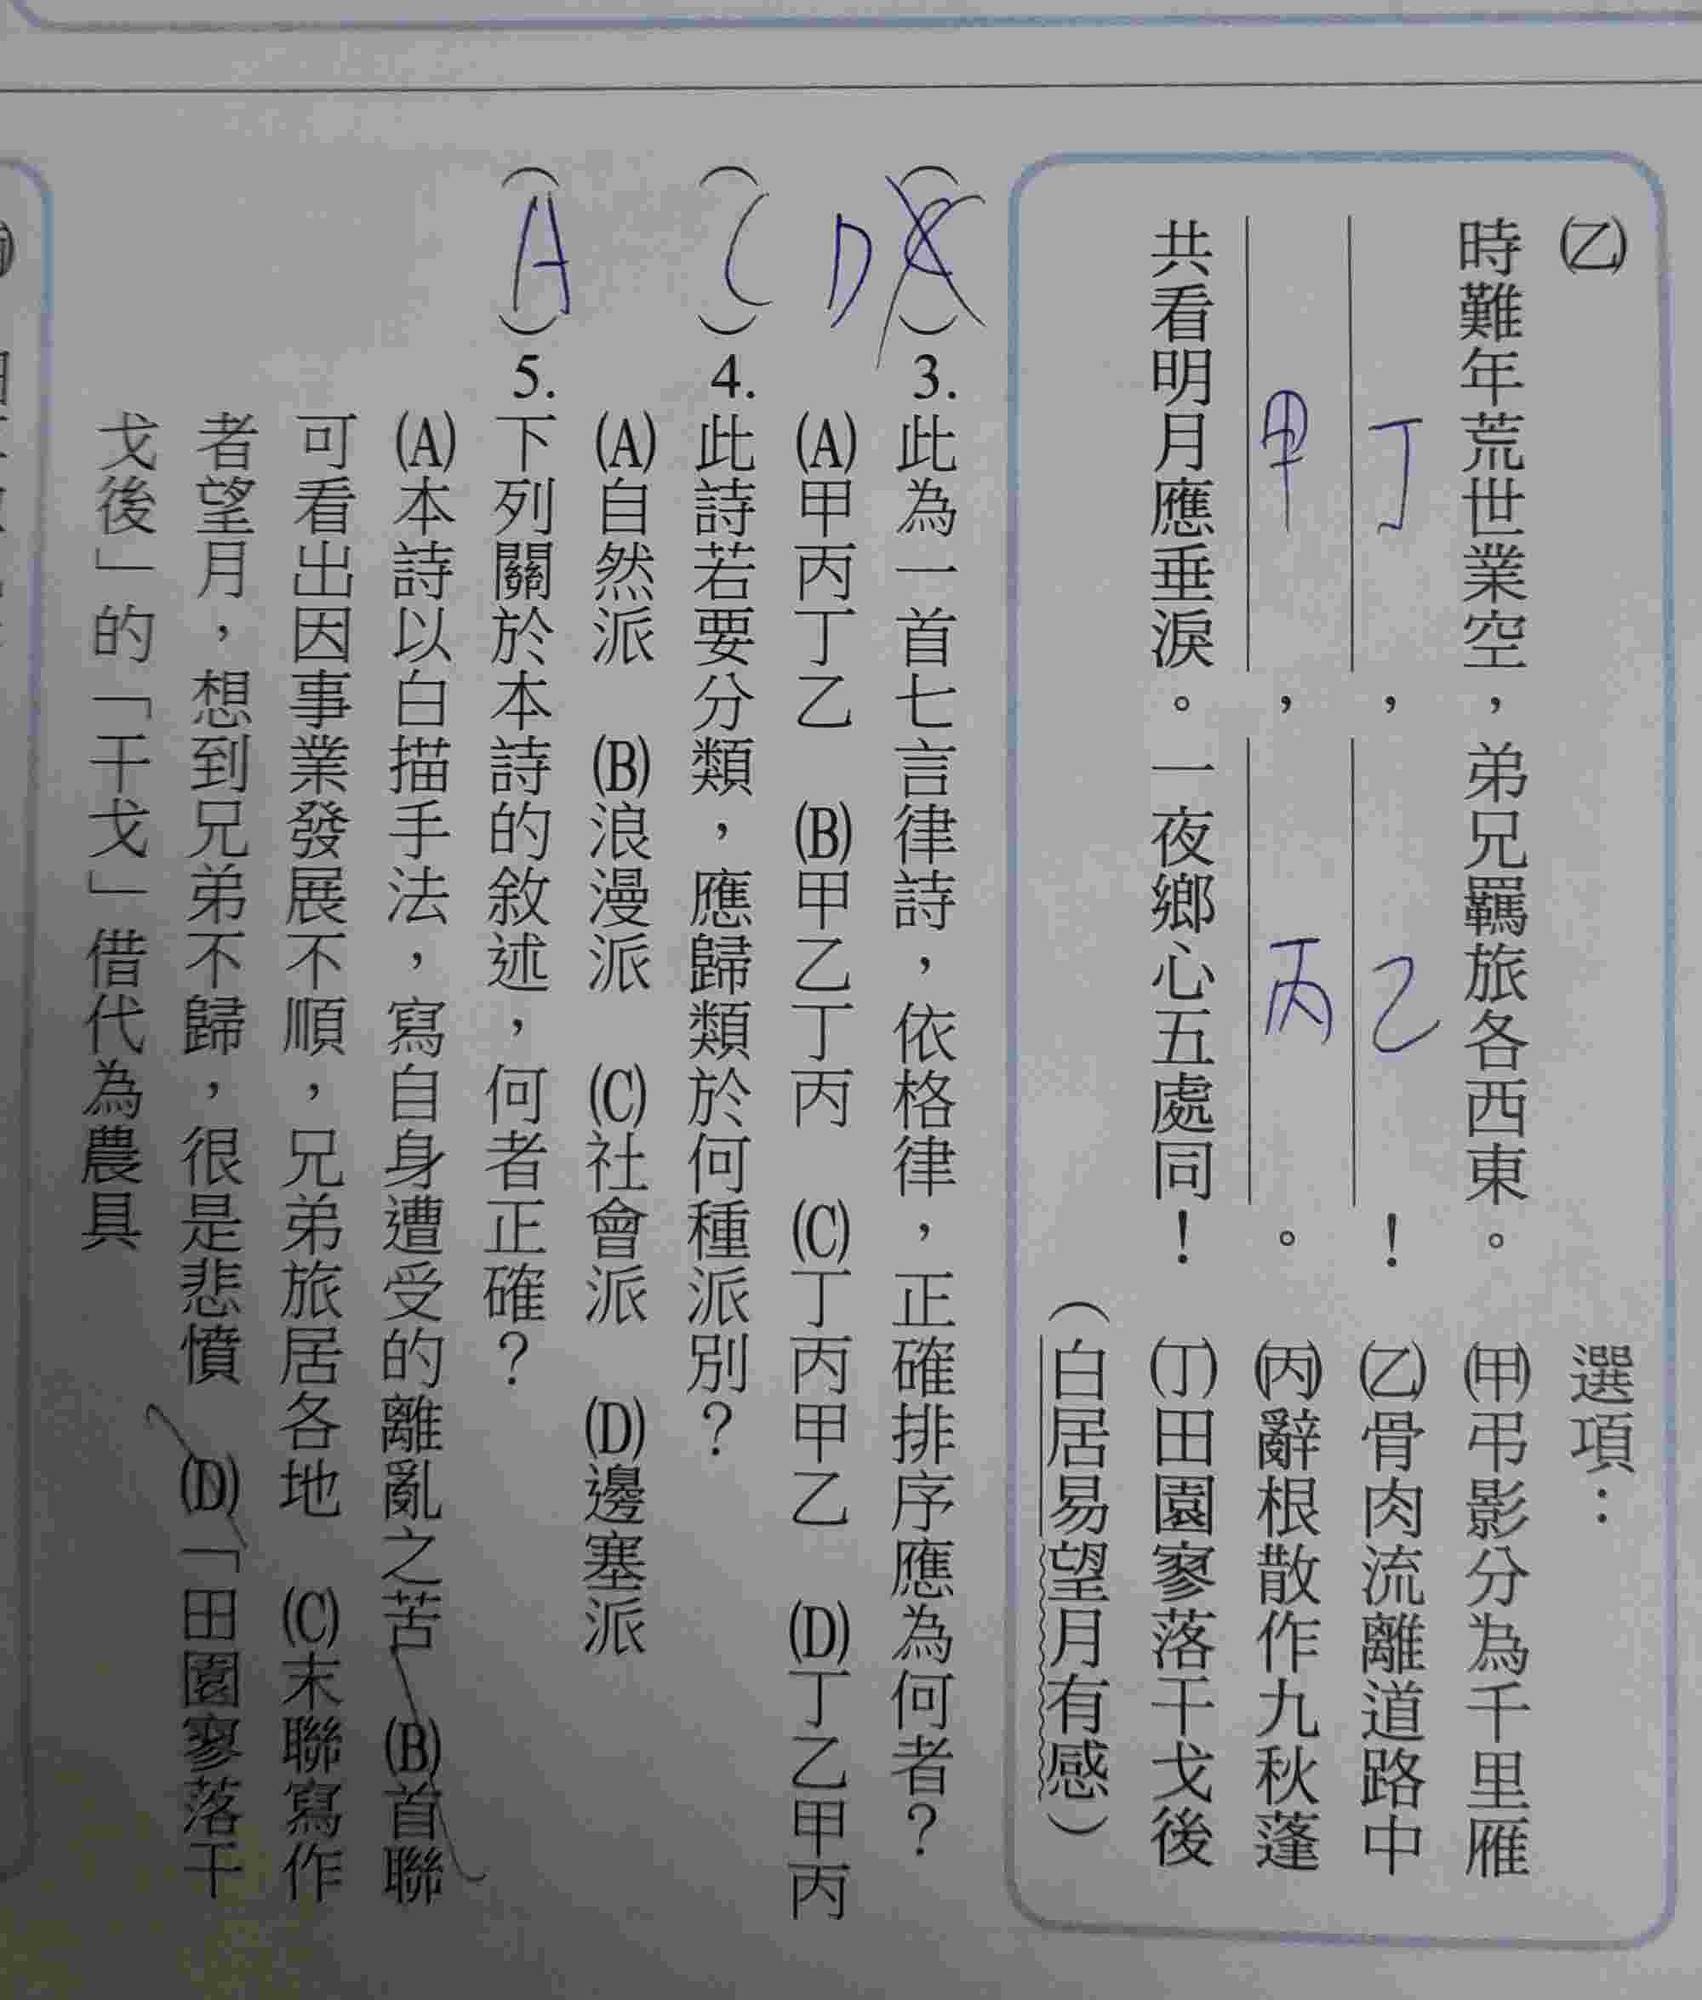 (乙)
時難年荒世業空，弟兄羈旅各西東。
丁，乙！
甲，丙。
共看明月應垂淚。一夜鄉心五處同！
選項：
(甲)弔影分為千里雁
(乙)骨肉流離道路中
(丙)辭根散作九秋蓬
(丁)田園寥落干戈後
（白居易望月有感）
（C）D 3.此為一首七言律詩，依格律，正確排序應為何者？
(A)甲丙丁乙 (B)甲乙丁丙 (C)丁丙甲乙 (D)丁乙甲丙
（C）4.此詩若要分類，應歸類於何種派別？
(A)自然派 (B)浪漫派 (C)社會派 (D)邊塞派
（A）5.下列關於本詩的敘述，何者正確？
(A)本詩以白描手法，寫自身遭受的離亂之苦 (B)首聯
可看出因事業發展不順，兄弟旅居各地 (C)末聯寫作
者望月，想到兄弟不歸，很是悲憤 (D)「田園寥落干
戈後」的「干戈」借代為農具